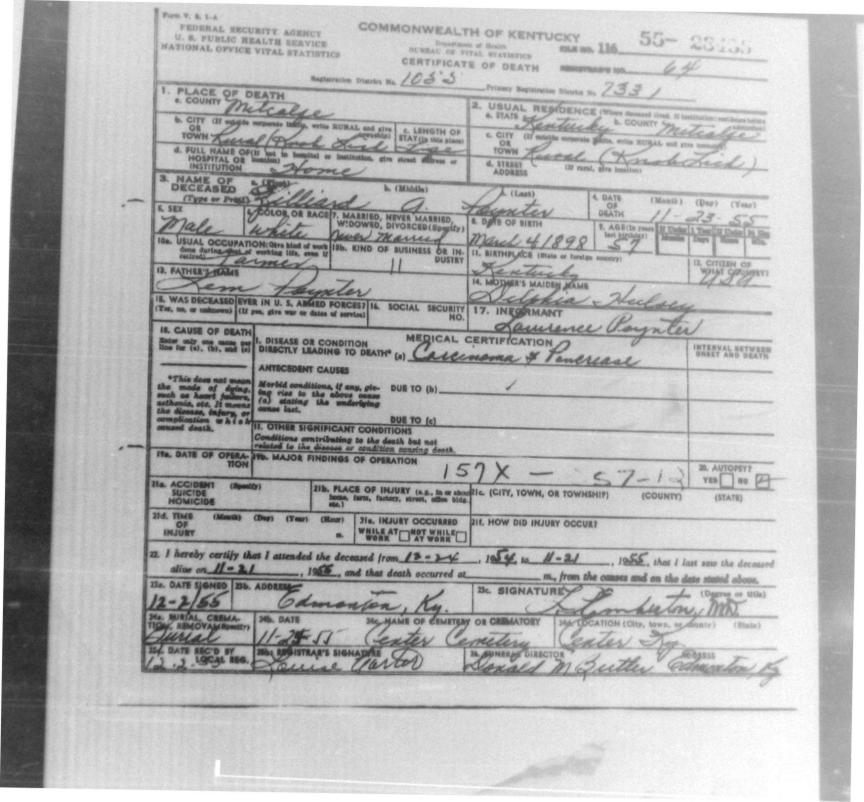 Form V. S. 1-A
FEDERAL SECURITY AGENCY
U. S. PUBLIC HEALTH SERVICE
NATIONAL OFFICE VITAL STATISTICS
COMMONWEALTH OF KENTUCKY
Department of Health
BUREAU OF VITAL STATISTICS
CERTIFICATE OF DEATH
FILE NO. 116 55-
REGISTRAR'S NO. 64
Registration District No. 1055 Primary Registration District No. 7331
1. PLACE OF DEATH
a. COUNTY Metcalfe
b. CITY (If outside corporate limits, write RURAL and give township) OR TOWN Rural (Knob Lick)
c. LENGTH OF STAY (in this place) Life
d. FULL NAME OF (If not in hospital or institution, give street address or location) HOSPITAL OR INSTITUTION Home
2. USUAL RESIDENCE (Where deceased lived. If institution: residence before admission)
a. STATE Kentucky b. COUNTY Metcalfe
c. CITY (If outside corporate limits, write RURAL and give township) OR TOWN Rural (Knob Lick)
d. STREET ADDRESS (If rural, give location)
3. NAME OF DECEASED (Type or Print) a. (First) Hilliard b. (Middle) A. c. (Last) Poynter
4. DATE OF DEATH (Month) (Day) (Year) 11-23-55
5. SEX Male
6. COLOR OR RACE White
7. MARRIED, NEVER MARRIED, WIDOWED, DIVORCED (Specify) never Married
8. DATE OF BIRTH March 4 1898
9. AGE (In years last birthday) 57 If Under 1 Year Months Days If Under 24 Hrs Hours Min.
10a. USUAL OCCUPATION (Give kind of work done during most of working life, even if retired) Farmer
10b. KIND OF BUSINESS OR INDUSTRY 11
11. BIRTHPLACE (State or foreign country) Kentucky
12. CITIZEN OF WHAT COUNTRY? USA
13. FATHER'S NAME Lem Poynter
14. MOTHER'S MAIDEN NAME Dilphia Hulsey
15. WAS DECEASED EVER IN U. S. ARMED FORCES? (Yes, no, or unknown) (If yes, give war or dates of service)
16. SOCIAL SECURITY NO.
17. INFORMANT Lawrence Poynter
18. CAUSE OF DEATH
Enter only one cause per line for (a), (b), and (c)
MEDICAL CERTIFICATION
INTERVAL BETWEEN ONSET AND DEATH
I. DISEASE OR CONDITION DIRECTLY LEADING TO DEATH* (a) Carcinoma of Pancrease
*This does not mean the mode of dying, such as heart failure, asthenia, etc. It means the disease, injury, or complication which caused death.
ANTECEDENT CAUSES
Morbid conditions, if any, giving rise to the above cause (a) stating the underlying cause last.
DUE TO (b)
DUE TO (c)
II. OTHER SIGNIFICANT CONDITIONS
Conditions contributing to the death but not related to the disease or condition causing death.
19a. DATE OF OPERATION
19b. MAJOR FINDINGS OF OPERATION
157X —
20. AUTOPSY? YES NO
21a. ACCIDENT SUICIDE HOMICIDE (Specify)
21b. PLACE OF INJURY (e.g., in or about home, farm, factory, street, office bldg. etc.)
21c. (CITY, TOWN, OR TOWNSHIP) (COUNTY) (STATE)
21d. TIME OF INJURY (Month) (Day) (Year) (Hour) m.
21e. INJURY OCCURRED WHILE AT WORK NOT WHILE AT WORK
21f. HOW DID INJURY OCCUR?
22. I hereby certify that I attended the deceased from 12-24, 1954 to 11-21, 1955, that I last saw the deceased
alive on 11-21, 1955, and that death occurred at m., from the causes and on the date stated above.
23a. DATE SIGNED 12-2/55
23b. ADDRESS Edmonton, Ky.
23c. SIGNATURE (Degree or title) MD
24a. BURIAL, CREMATION, REMOVAL (Specify) Burial
24b. DATE 11-25-55
24c. NAME OF CEMETERY OR CREMATORY Center Cemetery
24d. LOCATION (City, town, or county) (State) Center Ky
25a. DATE REC'D BY LOCAL REG. 12-2-55
25b. REGISTRAR'S SIGNATURE Louise Carter
26. FUNERAL DIRECTOR Donald M Butler ADDRESS Edmonton, Ky